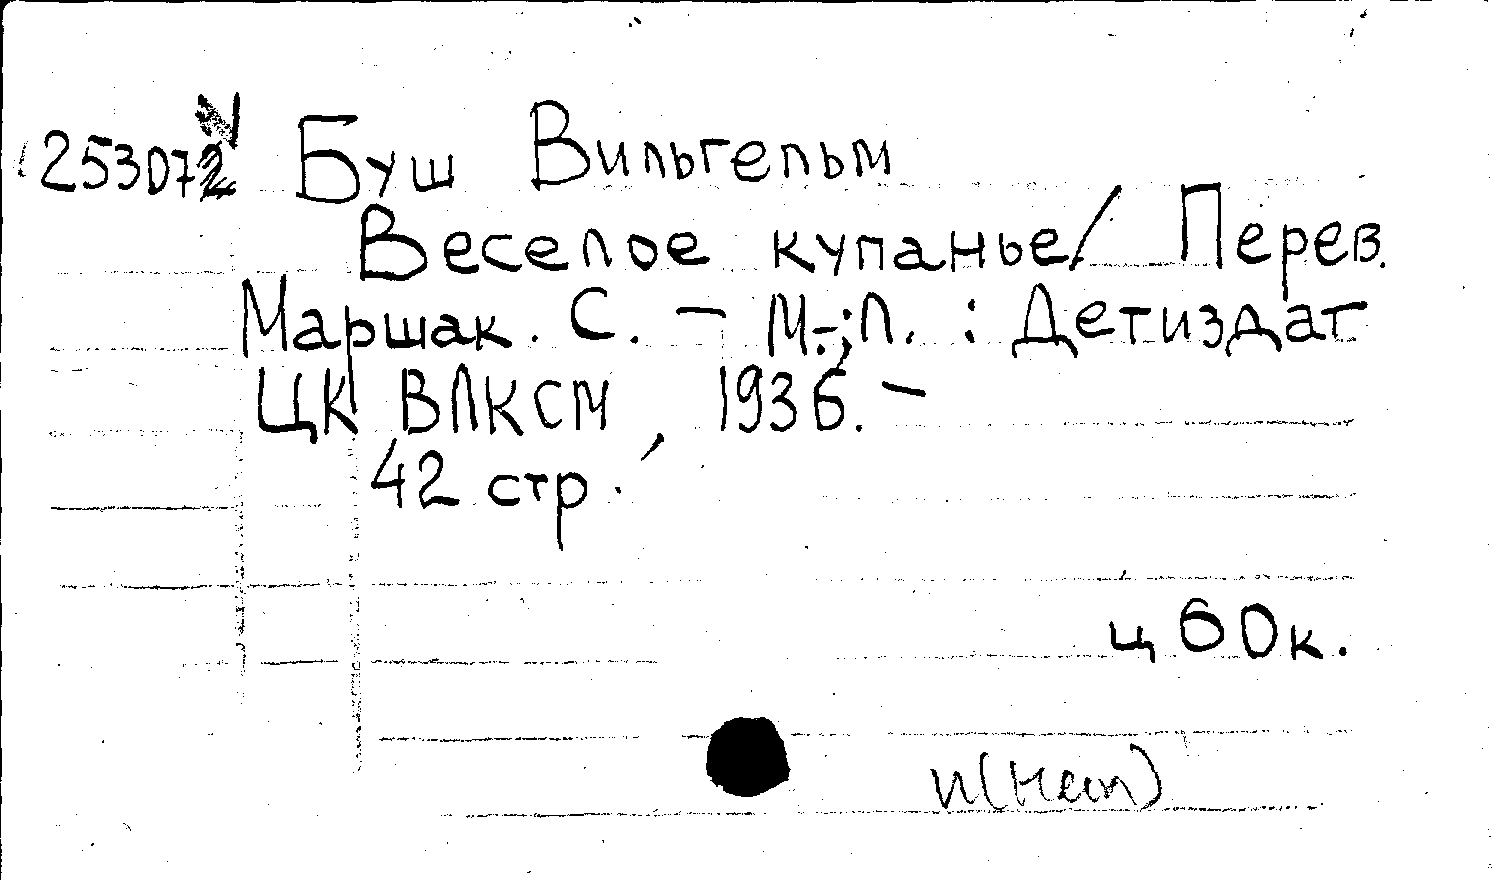 253072 Буш Вильгельм
Веселое купанье/ Перев.
Маршак. С. – М.-;Л. : Детиздат
ЦК ВЛКСМ, 1936. –
42 стр.
ц 60к.
и(нет)